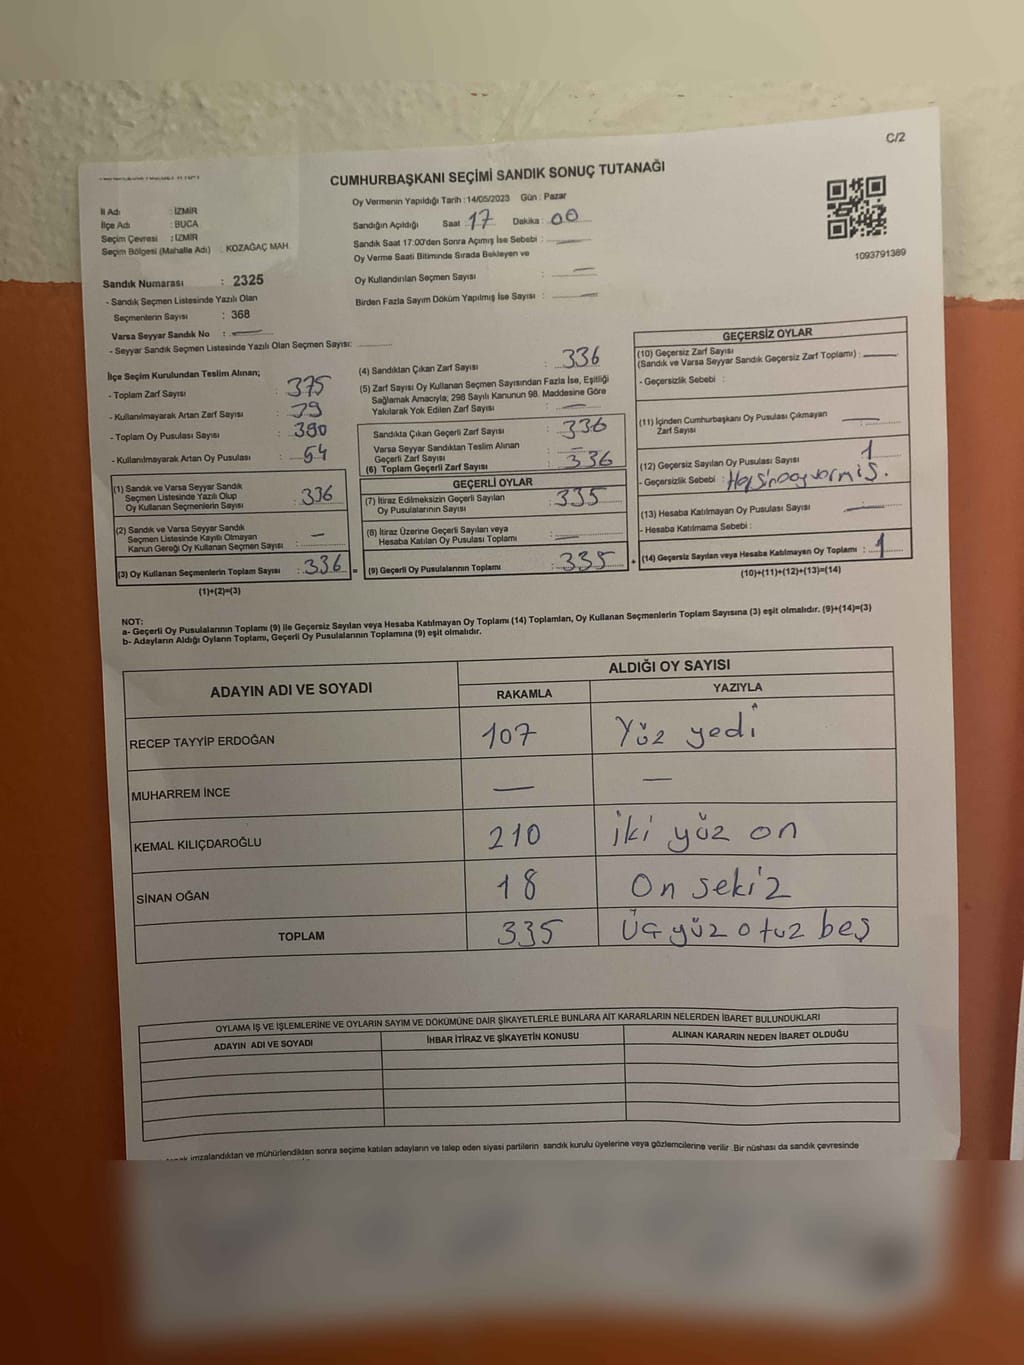 C/2
CUMHURBAŞKANI SEÇİMİ SANDIK SONUÇ TUTANAĞI
Oy Vermenin Yapıldığı Tarih : 14/05/2023 Gün : Pazar
İl Adı : İZMİR
İlçe Adı : BUCA
Seçim Çevresi : İZMİR
Seçim Bölgesi (Mahalle Adı) : KOZAĞAÇ MAH.
Sandığın Açıldığı Saat : 17 Dakika : 00
Sandık Saat 17:00'den Sonra Açımış İse Sebebi : —
Oy Verme Saati Bitiminde Sırada Bekleyen ve
Oy Kullandırılan Seçmen Sayısı : —
Birden Fazla Sayım Döküm Yapılmış İse Sayısı : —
1093791389
Sandık Numarası : 2325
- Sandık Seçmen Listesinde Yazılı Olan
Seçmenlerin Sayısı : 368
Varsa Seyyar Sandık No : —
- Seyyar Sandık Seçmen Listesinde Yazılı Olan Seçmen Sayısı:
İlçe Seçim Kurulundan Teslim Alınan;
- Toplam Zarf Sayısı : 375
- Kullanılmayarak Artan Zarf Sayısı : 39
- Toplam Oy Pusulası Sayısı : 390
- Kullanılmayarak Artan Oy Pusulası : 54
(1) Sandık ve Varsa Seyyar Sandık
Seçmen Listesinde Yazılı Olup
Oy Kullanan Seçmenlerin Sayısı : 336
(2) Sandık ve Varsa Seyyar Sandık
Seçmen Listesinde Kayıtlı Olmayan
Kanun Gereği Oy Kullanan Seçmen Sayısı : —
(3) Oy Kullanan Seçmenlerin Toplam Sayısı : 336 =
(1)+(2)=(3)
(4) Sandıktan Çıkan Zarf Sayısı : 336
(5) Zarf Sayısı Oy Kullanan Seçmen Sayısından Fazla İse, Eşitliği
Sağlamak Amacıyla; 298 Sayılı Kanunun 98. Maddesine Göre
Yakılarak Yok Edilen Zarf Sayısı : —
Sandıkta Çıkan Geçerli Zarf Sayısı : 336
Varsa Seyyar Sandıktan Teslim Alınan
Geçerli Zarf Sayısı : —
(6) Toplam Geçerli Zarf Sayısı : 336
GEÇERLİ OYLAR
(7) İtiraz Edilmeksizin Geçerli Sayılan
Oy Pusulalarının Sayısı : 335
(8) İtiraz Üzerine Geçerli Sayılan veya
Hesaba Katılan Oy Pusulası Toplamı : —
(9) Geçerli Oy Pusulalarının Toplamı : 335 +
GEÇERSİZ OYLAR
(10) Geçersiz Zarf Sayısı
(Sandık ve Varsa Seyyar Sandık Geçersiz Zarf Toplamı) : —
- Geçersizlik Sebebi :
(11) İçinden Cumhurbaşkanı Oy Pusulası Çıkmayan
Zarf Sayısı : —
(12) Geçersiz Sayılan Oy Pusulası Sayısı : 1
- Geçersizlik Sebebi : Hepsine oy vermiş.
(13) Hesaba Katılmayan Oy Pusulası Sayısı : —
- Hesaba Katılmama Sebebi :
(14) Geçersiz Sayılan veya Hesaba Katılmayan Oy Toplamı : 1
(10)+(11)+(12)+(13)=(14)
NOT:
a- Geçerli Oy Pusulalarının Toplamı (9) ile Geçersiz Sayılan veya Hesaba Katılmayan Oy Toplamı (14) Toplamları, Oy Kullanan Seçmenlerin Toplam Sayısına (3) eşit olmalıdır. (9)+(14)=(3)
b- Adayların Aldığı Oyların Toplamı, Geçerli Oy Pusulalarının Toplamına (9) eşit olmalıdır.
ADAYIN ADI VE SOYADI
ALDIĞI OY SAYISI
RAKAMLA YAZIYLA
RECEP TAYYİP ERDOĞAN 107 Yüz yedi
MUHARREM İNCE — —
KEMAL KILIÇDAROĞLU 210 iki yüz on
SİNAN OĞAN 18 On sekiz
TOPLAM 335 Üç yüz otuz beş
OYLAMA İŞ VE İŞLEMLERİNE VE OYLARIN SAYIM VE DÖKÜMÜNE DAİR ŞİKAYETLERLE BUNLARA AİT KARARLARIN NELERDEN İBARET BULUNDUKLARI
ADAYIN ADI VE SOYADI İHBAR İTİRAZ VE ŞİKAYETİN KONUSU ALINAN KARARIN NEDEN İBARET OLDUĞU
imzalandıktan ve mühürlendikten sonra seçime katılan adayların ve talep eden siyasi partilerin sandık kurulu üyelerine veya gözlemcilerine verilir. Bir nüshası da sandık çevresinde